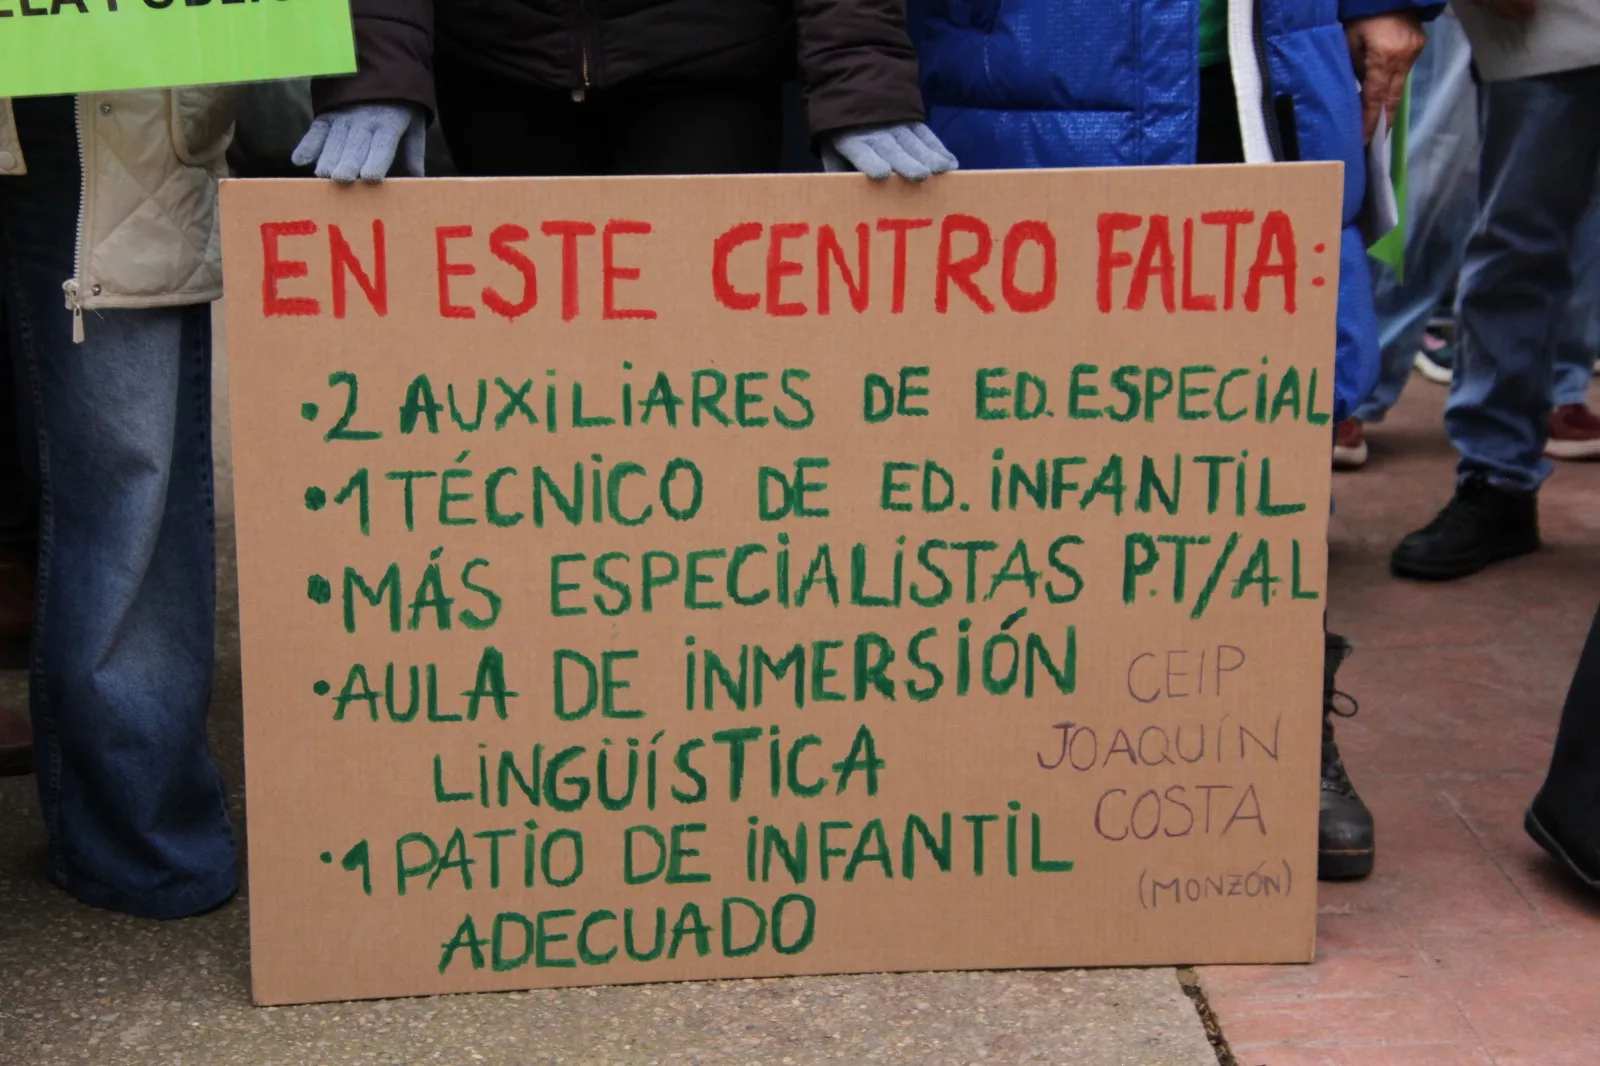 EN ESTE CENTRO FALTA:
·2 AUXILIARES DE ED. ESPECIAL
·1 TÉCNICO DE ED. INFANTIL
·MÁS ESPECIALISTAS P.T/A.L
·AULA DE INMERSIÓN
LINGÜÍSTICA
·1 PATIO DE INFANTIL
ADECUADO
CEIP
JOAQUÍN
COSTA
(MONZÓN)